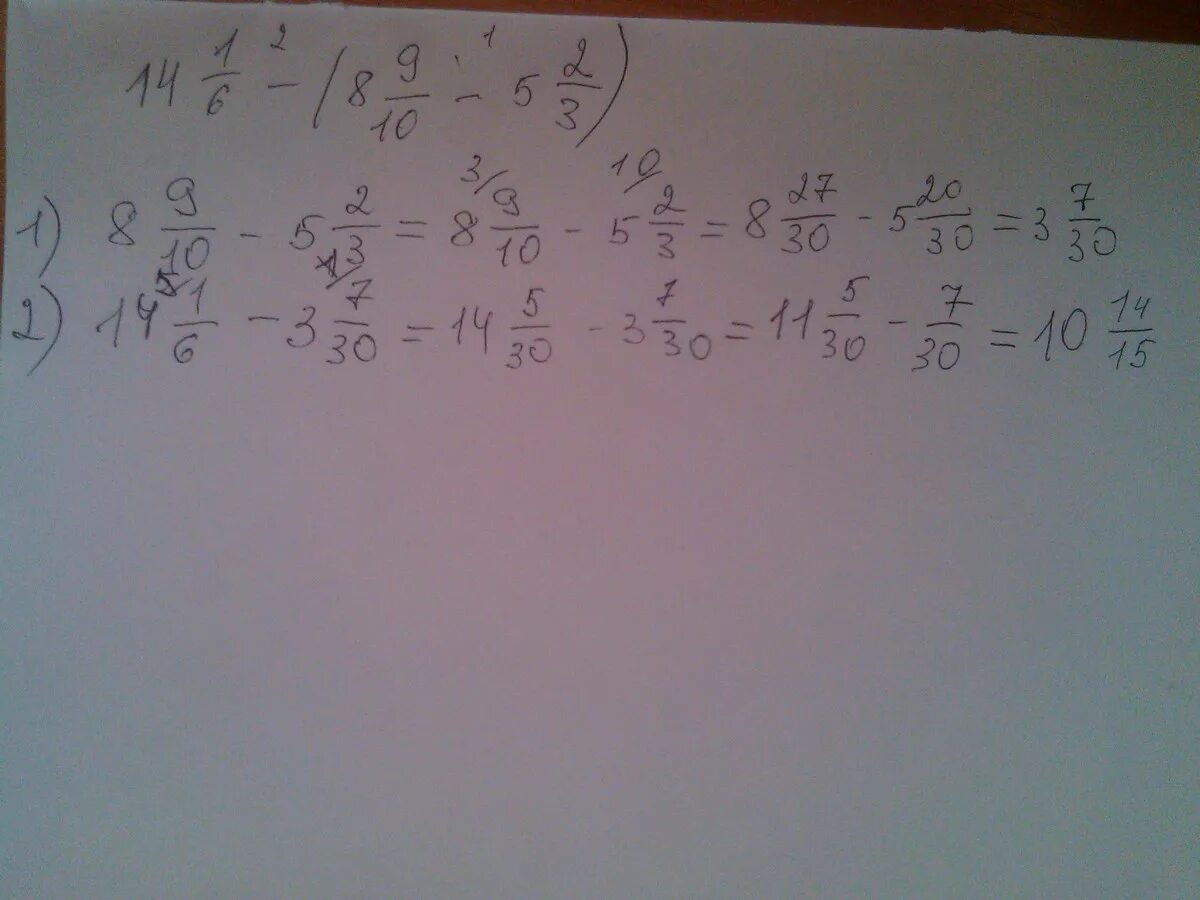 14 1/6 - (8 9/10 - 5 2/3)
2 1
3/ 10/
1) 8 9/10 - 5 2/3 = 8 9/10 - 5 2/3 = 8 27/30 - 5 20/30 = 3 7/30
2) 14 1/6 - 3 7/30 = 14 5/30 - 3 7/30 = 11 5/30 - 7/30 = 10 14/15